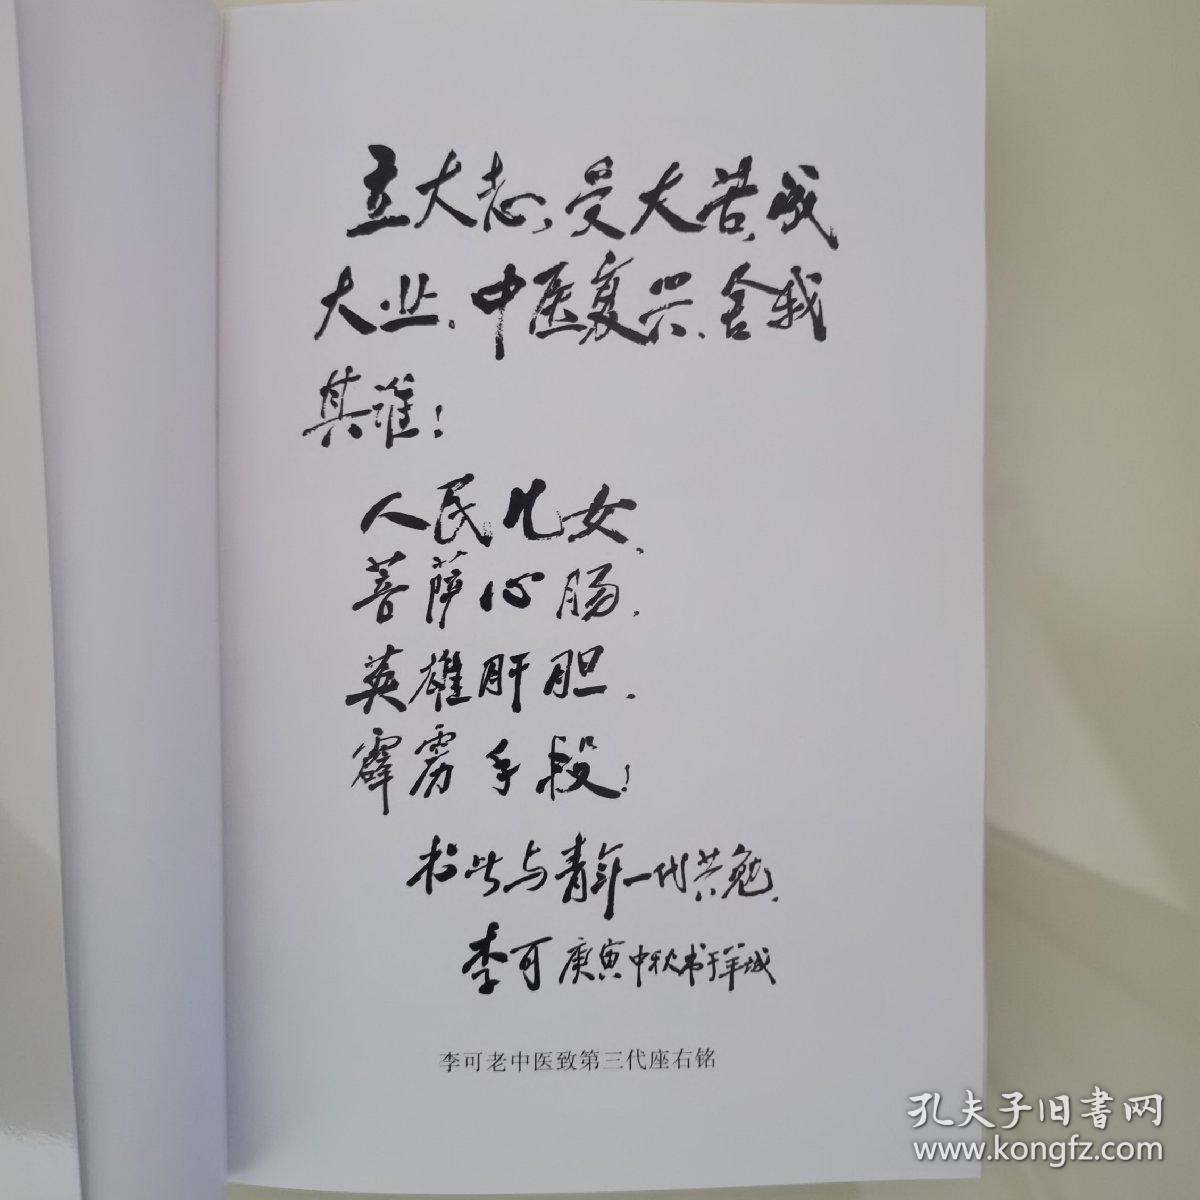 立大志、受大苦、成
大业、中医复兴、舍我
其谁！
人民儿女、
菩萨心肠、
英雄肝胆、
霹雳手段！
书此与青年一代共勉、
李可庚寅中秋书于羊城
李可老中医致第三代座右铭
孔夫子旧书网
www.kongfz.com